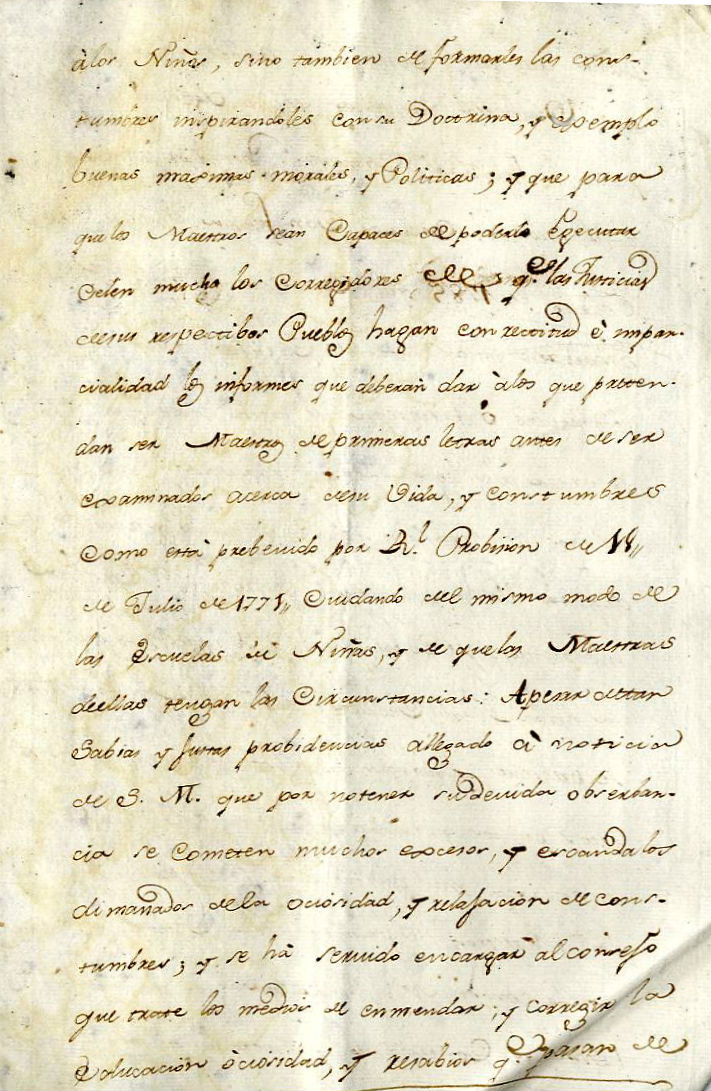 à los Niños, sino tambien de formarles las cons-
tumbres inspirandoles con su Doctrina, y exemplo
buenas maximas morales, y Politicas; y que para
que los Maestros sean Capaces de poderlo Egecutar
Celen mucho los Corregidores q.e las Justicias
desus respectibos Pueblos hagan con rectitud è impar-
cialidad los informes que deberàn dar à los que preten-
dan ser Maestros de primeras letras antes de ser
examinados acerca desu Vida, y constumbres
Como està prebenido por R.l Probision de 11,,
de Julio de 1771,, Cuidando del mismo modo de
las Escuelas de Niñas, y de quelas Maestras
deellas tengan las Circunstancias: Apesar de tan
Sabias y Justas probidencias allegado à noticia
de S. M. que por notener su devida obserban-
cia se Cometen muchos excesos, y escandalos
dimanados dela ociosidad, y relajacion de cons-
tumbres; y se hà servido encargar al consejo
que trate los medios de enmendar, y corregir la
Educacion òciosidad, y resabios q.e pasan de